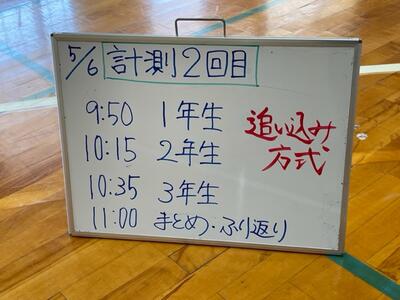 5/6 計測2回目
9:50 1年生
10:15 2年生
10:35 3年生
11:00 まとめ・ふり返り
追い込み
方式